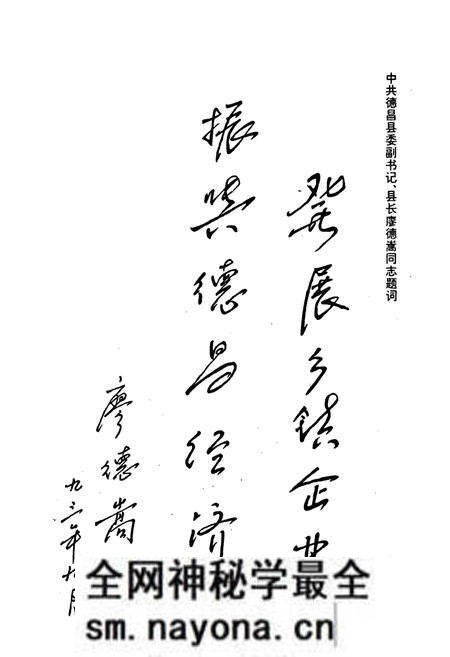 中共德昌县委副书记、县长廖德嵩同志题词
發展乡镇企业
振兴德昌经济
廖德嵩
九三年 月
全网神秘学最全
sm.nayona.cn